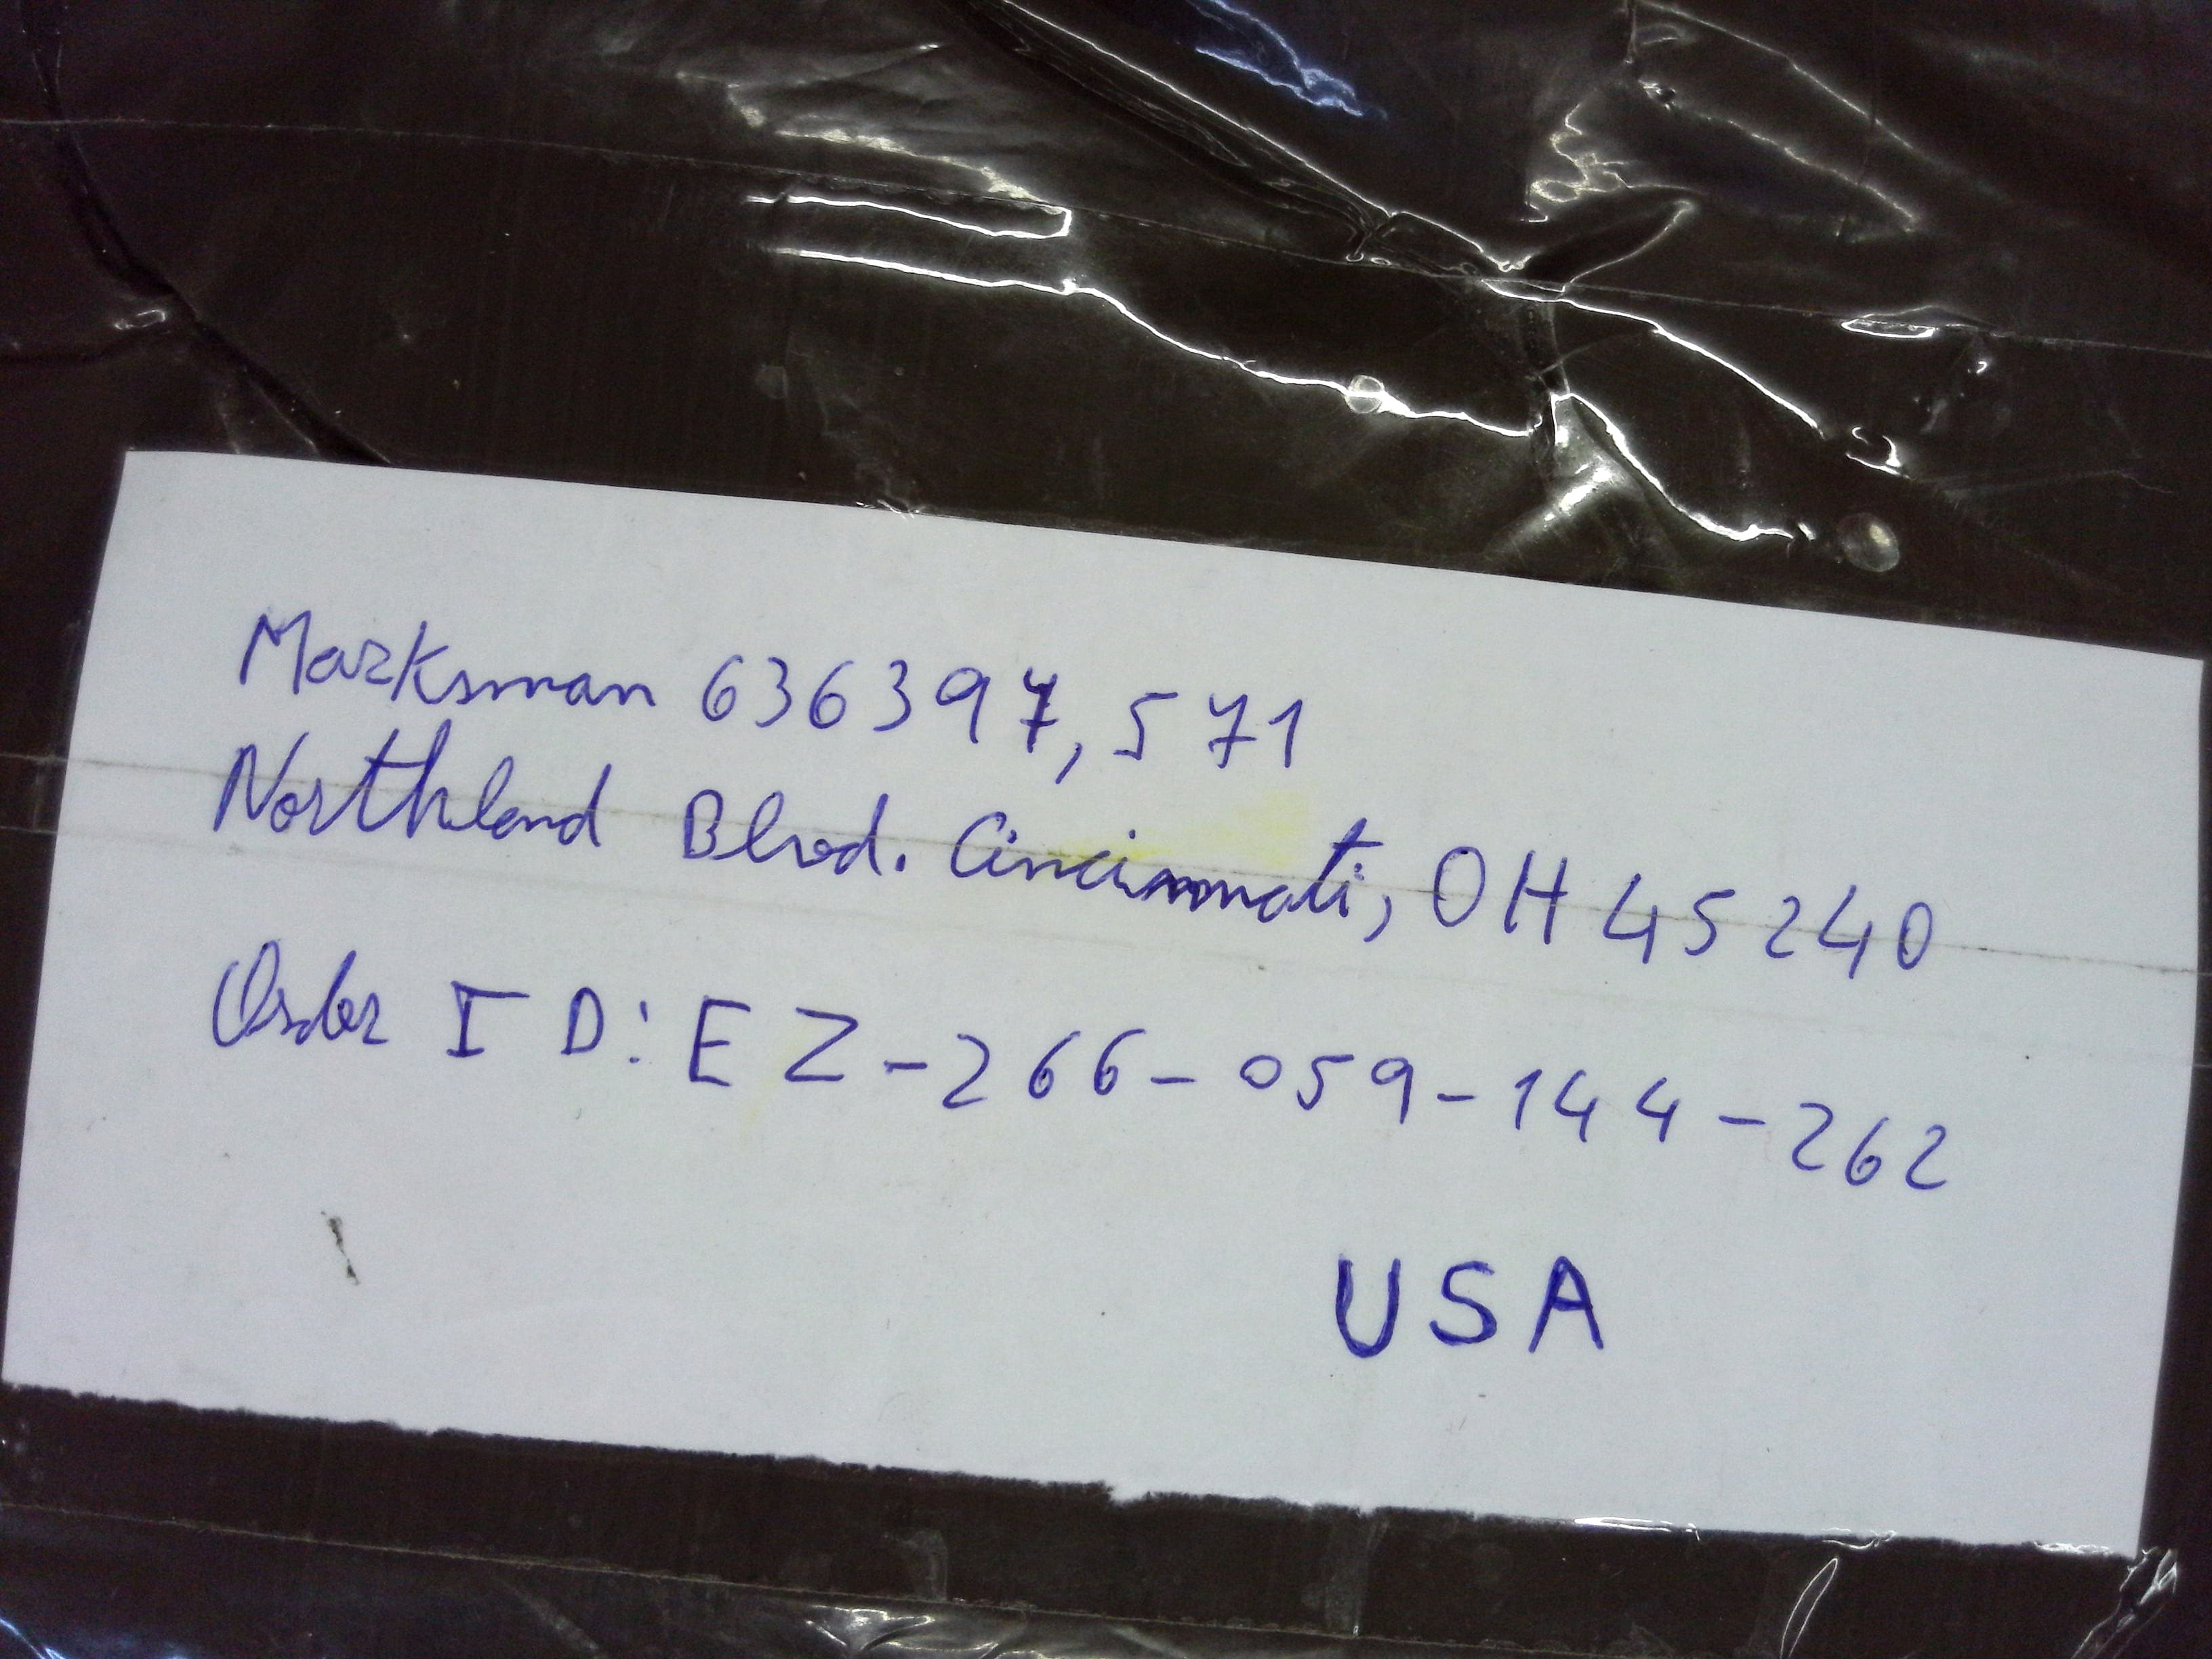 Marksman 636397, 571
Northland Blvd. Cincinnati, OH 45240
Order ID: EZ-266-059-144-262
USA